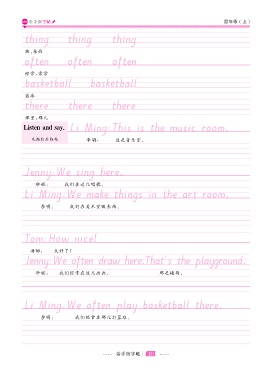 金牛耳字帖 四年级（上）
thing thing thing
often often often
经常,常常
basketball basketball
篮球
there there there
那里,那儿
Listen and say. Li Ming:This is the music room.
李明: 这是音乐室。
Jenny:We sing here.
珍妮: 我们在这儿唱歌。
Li Ming:We make things in the art room.
李明: 我们在美术室做东西。
Tom:How nice!
汤姆: 太好了!
Jenny:We often draw here.That's the playground.
珍妮: 我们经常在这儿画画。 那是操场。
Li Ming:We often play basketball there.
李明: 我们经常在那儿打篮球。